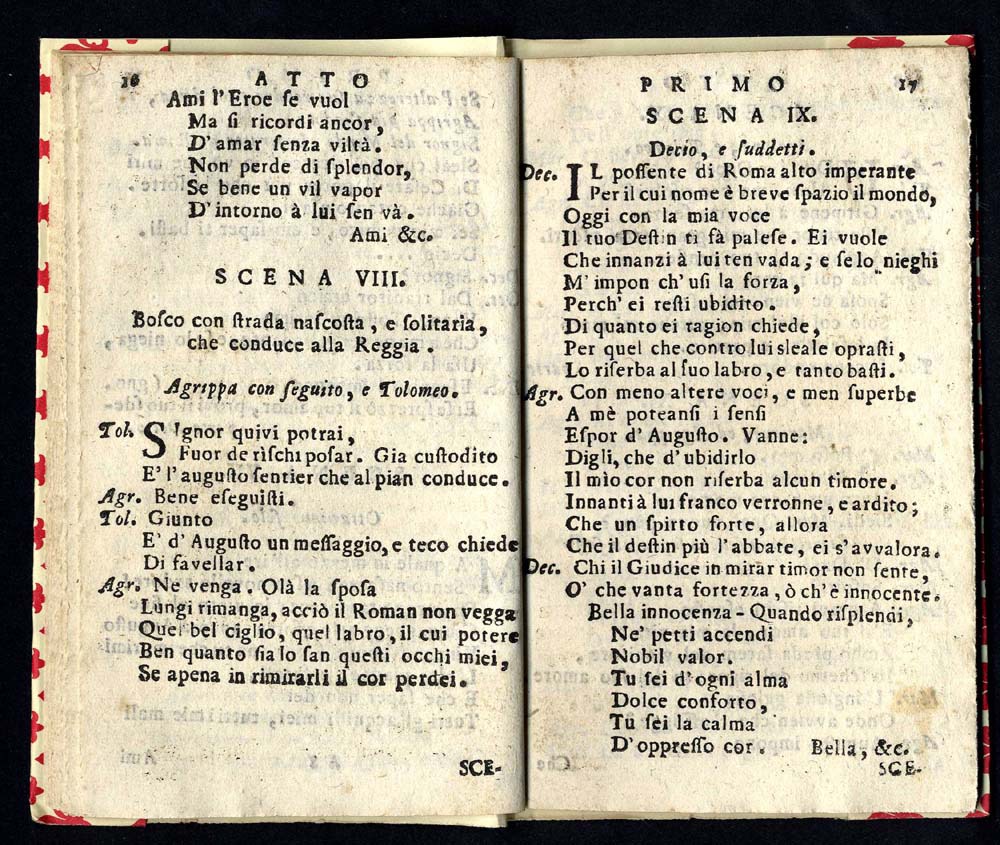 16 ATTO
Ami l'Eroe ſe vuol
Ma ſi ricordi ancor,
D'amar ſenza viltà.
Non perde di ſplendor,
Se bene un vil vapor
D'intorno à lui ſen và.
Ami &c.
SCENA VIII.
Boſco con ſtrada naſcoſta, e ſolitaria,
che conduce alla Reggia.
Agrippa con ſeguito, e Tolomeo.
Tol. SIgnor quivi potrai,
Fuor de riſchi poſar. Gia cuſtodito
E' l'auguſto ſentier che al pian conduce.
Agr. Bene eſeguiſti.
Tol. Giunto
E' d'Auguſto un meſſaggio, e teco chiede
Di favellar.
Agr. Ne venga. Olà la ſpoſa
Lungi rimanga, acciò il Roman non vegga
Quel bel ciglio, quel labro, il cui potere
Ben quanto ſia lo ſan queſti occhi miei,
Se apena in rimirarli il cor perdei.
SCE-
PRIMO 17
SCENA IX.
Decio, e ſuddetti.
Dec. IL poſſente di Roma alto imperante
Per il cui nome è breve ſpazio il mondo,
Oggi con la mia voce
Il tuo Deſtin ti fà paleſe. Ei vuole
Che innanzi à lui ten vada; e ſe lo nieghi
M'impon ch'uſi la forza,
Perch'ei reſti ubidito.
Di quanto ei ragion chiede,
Per quel che contro lui sleale opraſti,
Lo riſerba al ſuo labro, e tanto baſti.
Agr. Con meno altere voci, e men ſuperbe
A mè poteanſi i ſenſi
Eſpor d'Auguſto. Vanne:
Digli, che d'ubidirlo
Il mio cor non riſerba alcun timore.
Innanti à lui franco verronne, e ardito;
Che un ſpirto forte, allora
Che il deſtin più l'abbate, ei s'avvalora.
Dec. Chi il Giudice in mirar timor non ſente,
O' che vanta fortezza, ò ch'è innocente.
Bella innocenza - Quando riſplendi,
Ne' petti accendi
Nobil valor.
Tu ſei d'ogni alma
Dolce conforto,
Tu ſei la calma
D'oppreſſo cor. Bella, &c.
SCE-